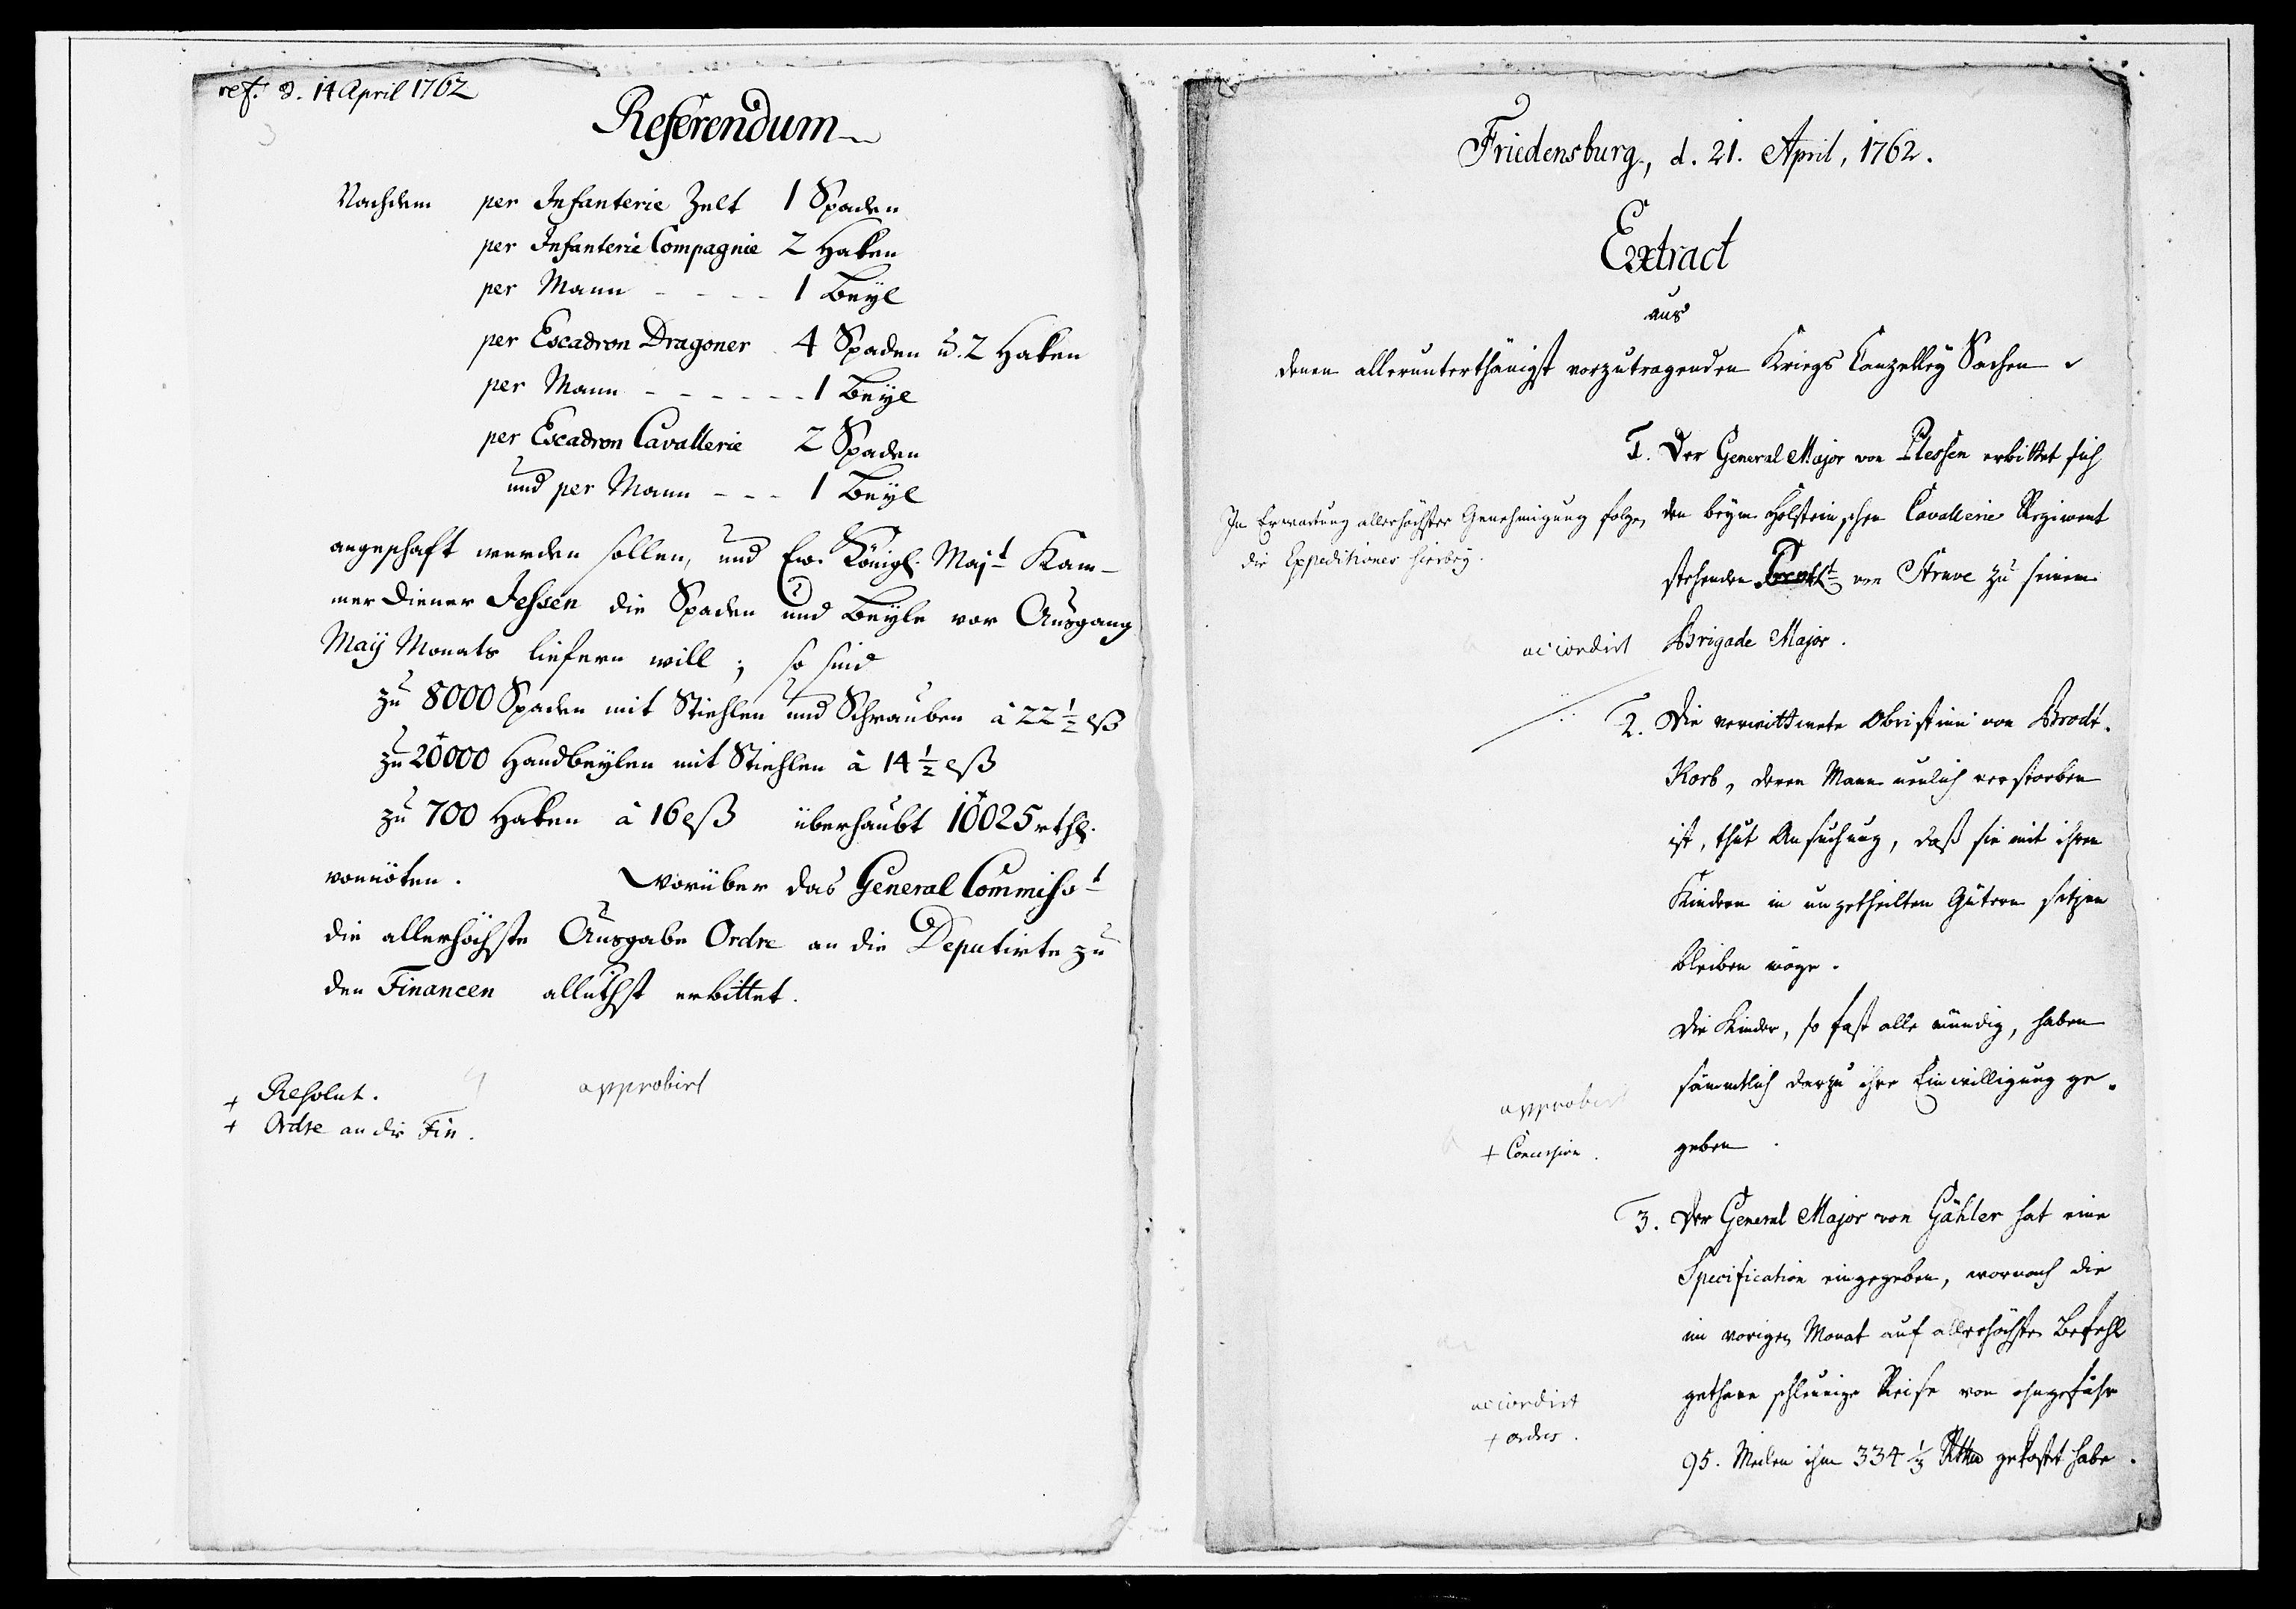 ref. d. 14 April 1762
Referendum
Nachdem per Infanterie Zelt 1 Spaden
per Infanterie Compagnie 2 Haken
per Mann - - - - 1 Beyl
per Escadron Dragoner 4 Spaden u. 2 Haken
per Mann - - - - - - 1 Beyl
per Escadron Cavallerie 2 Spaden
und per Mann - - - 1 Beyl
angeschaft werden sollen, und Ew. Königl. Majt Kam-
mer Diener Jessen die Spaden und Beyle vor Ausgang
Maij Monats liefern will; so sind
zu 8000 Spaden mit Stiehlen und Schrauben à 22 1/2 ß
zu 20000 Handbeylen mit Stiehlen à 14 1/2 ß
zu 700 Haken à 16 ß überhaubt 10025 rthl.
vonnöten. Worüber das General Commisst
die allerhöchste Ausgabe Ordre an die Deputirte zu
den Financen alluthst erbittet.
approbirt
+ Resolut.
+ Ordre an die Fin.
Friedensburg, d. 21. April, 1762.
Extract
aus
denen allerunterthänigst vorzutragenden Kriegs Canzelley Sachen
1. Der General Major von Plessen erbittet sich
den beym Holsteinschen Cavallerie Regiment
stehenden von Struve zu seinem
Brigade Major.
In Erwartung allerhöchster Genehmigung folgen
die Expeditiones hierbey.
accordirt
2. Die verwittwete Obristinn von Brodt-
Korb, deren Mann neulich verstorben
ist, thut Ansuchung, daß sie mit ihren
Kindern in ungetheilten Gütern sitzen
bleiben möge.
Die Kinder, so fast alle mündig, haben
sämmtlich darzu ihre Einwilligung ge-
geben.
approbirt
+ Concession.
3. Der General Major von Gähler hat eine
Specification eingegeben, wornach die
im vorigen Monat auf allerhöchsten Befehl
gethane schleunige Reise von ohngefähr
95. Meilen ihm 334 1/3 Rthlr gekostet habe.
accordirt
+ ordres.